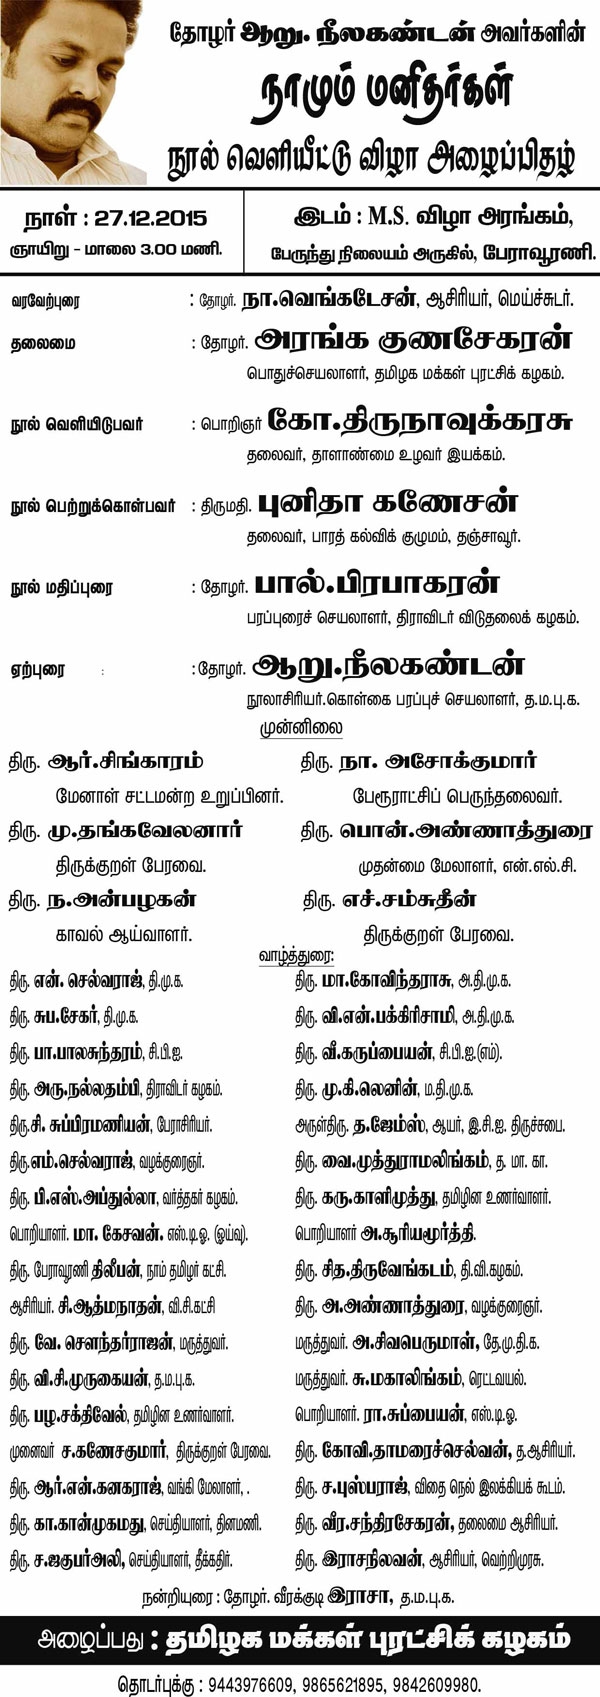 தோழர் ஆறு. நீலகண்டன் அவர்களின்
நாமும் மனிதர்கள்
நூல் வெளியீட்டு விழா அழைப்பிதழ்
நாள் : 27.12.2015
ஞாயிறு - மாலை 3.00 மணி.
இடம் : M.S. விழா அரங்கம்,
பேருந்து நிலையம் அருகில், பேராவூரணி.
வரவேற்புரை : தோழர். நா.வெங்கடேசன், ஆசிரியர், மெய்ச்சுடர்.
தலைமை : தோழர். அரங்க குணசேகரன்
பொதுச்செயலாளர், தமிழக மக்கள் புரட்சிக் கழகம்.
நூல் வெளியிடுபவர் : பொறிஞர் கோ.திருநாவுக்கரசு
தலைவர், தாளாண்மை உழவர் இயக்கம்.
நூல் பெற்றுக்கொள்பவர் : திருமதி. புனிதா கணேசன்
தலைவர், பாரத் கல்விக் குழுமம், தஞ்சாவூர்.
நூல் மதிப்புரை : தோழர். பால்.பிரபாகரன்
பரப்புரைச் செயலாளர், திராவிடர் விடுதலைக் கழகம்.
ஏற்புரை : : தோழர். ஆறு.நீலகண்டன்
நூலாசிரியர்.கொள்கை பரப்புச் செயலாளர், த.ம.பு.க.
முன்னிலை
திரு. ஆர்.சிங்காரம்
மேனாள் சட்டமன்ற உறுப்பினர்.
திரு. நா. அசோக்குமார்
பேரூராட்சிப் பெருந்தலைவர்.
திரு. மு.தங்கவேலனார்
திருக்குறள் பேரவை.
திரு. பொன்.அண்ணாத்துரை
முதன்மை மேலாளர், என்.எல்.சி.
திரு. ந.அன்பழகன்
காவல் ஆய்வாளர்.
திரு. எச்.சம்சுதீன்
திருக்குறள் பேரவை.
வாழ்த்துரை:
திரு. என். செல்வராஜ், தி.மு.க.
திரு. மா.கோவிந்தராசு, அ.தி.மு.க.
திரு. சுப.சேகர், தி.மு.க.
திரு. வி.என்.பக்கிரிசாமி, அ.தி.மு.க.
திரு. பா.பாலசுந்தரம், சி.பி.ஐ.
திரு. வீ.கருப்பையன், சி.பி.ஐ.(எம்).
திரு. அரு.நல்லதம்பி, திராவிடர் கழகம்.
திரு. மு.கி.லெனின், ம.தி.மு.க.
திரு.சி. சுப்பிரமணியன், பேராசிரியர்.
அருள்திரு. த.ஜேம்ஸ், ஆயர், இ.சி.ஐ. திருச்சபை.
திரு.எம்.செல்வராஜ், வழக்குரைஞர்.
திரு. வை.முத்துராமலிங்கம், த. மா. கா.
திரு. பி.எஸ்.அப்துல்லா, வர்த்தகர் கழகம்.
திரு. கரு.காளிமுத்து, தமிழின உணர்வாளர்.
பொறியாளர். மா. கேசவன். எஸ்.டி.ஓ. (ஓய்வு).
பொறியாளர் அ.சூரியமூர்த்தி.
திரு. பேராவூரணி திலீபன், நாம் தமிழர் கட்சி.
திரு. சித.திருவேங்கடம், தி.வி.கழகம்.
ஆசிரியர். சி.ஆத்மநாதன், வி.சி.கட்சி
திரு. அ.அண்ணாத்துரை, வழக்குரைஞர்.
திரு. வே. சௌந்தர்ராஜன், மருத்துவர்.
மருத்துவர். அ.சிவபெருமாள், தே.மு.தி.க.
திரு. வி.சி.முருகையன், த.ம.பு.க.
மருத்துவர். சு.மகாலிங்கம், ரெட்டவயல்.
திரு. பழ.சக்திவேல், தமிழின உணர்வாளர்.
பொறியாளர். ரா.சுப்பையன், எஸ்.டி.ஓ.
முனைவர் ச.கணேசகுமார், திருக்குறள் பேரவை.
திரு. கோவி.தாமரைச்செல்வன், த.ஆசிரியர்.
திரு. ஆர்.என்.கனகராஜ், வங்கி மேலாளர், .
திரு. ச.புஸ்பராஜ், விதை நெல் இலக்கியக் கூடம்.
திரு. கா.கான்முகமது, செய்தியாளர், தினமணி.
திரு. வீர.சந்திரசேகரன், தலைமை ஆசிரியர்.
திரு. ச.ஜகுபர்அலி, செய்தியாளர், தீக்கதிர்.
திரு. இராசநிலவன், ஆசிரியர், வெற்றிமுரசு.
நன்றியுரை : தோழர். வீரக்குடி இராசா, த.ம.பு.க.
அழைப்பது : தமிழக மக்கள் புரட்சிக் கழகம்
தொடர்புக்கு : 9443976609, 9865621895, 9842609980.